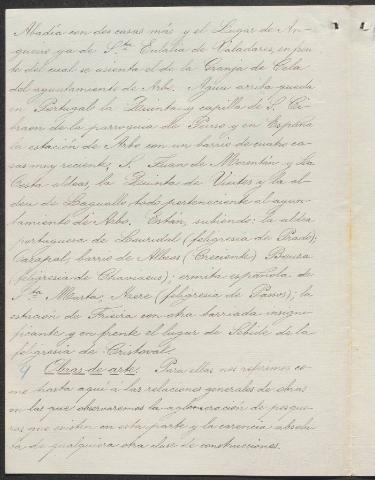 Abadía con dos casas más y el Lugar de An-
gueiro ya de Sta. Eulalia de Valadares, enfren-
te del cual se asienta el de la Granja de Cela
del ayuntamiento de Arbo. Agua arriba queda
en Portugal la Quinta y capilla de S. Ci-
braon de la parroquia de Penso y en España
la estación de Arbo con un barrio de cuatro ca-
sas muy reciente; S. Juan de Morentán y La
Costa aldeas, la Quinta de Vuites y la al-
dea de Laguallo todo perteneciente al ayun-
tamiento de Arbo. Están, subiendo: la aldea
portuguesa de Louridal (feligresia de Prado);
Carapal, barrio de Albeos (Creciente) Bouza
(feligresia de Chaviaes); ermita española de
Sta. Marta, Nere (feligresia de Passos); la
estación de Frieira con otra barriada insigni-
ficante y en frente el lugar de Sobide de la
feligresia de Cristoval
4 Obras de arte. Para ellas nos referimos co-
mo hasta aquí á las relaciones generales de obras
en las que observaremos la aglomeración de pesque-
ras que existen en esta parte y la carencia absolu-
ta de qualquiera otra clase de construcciones.